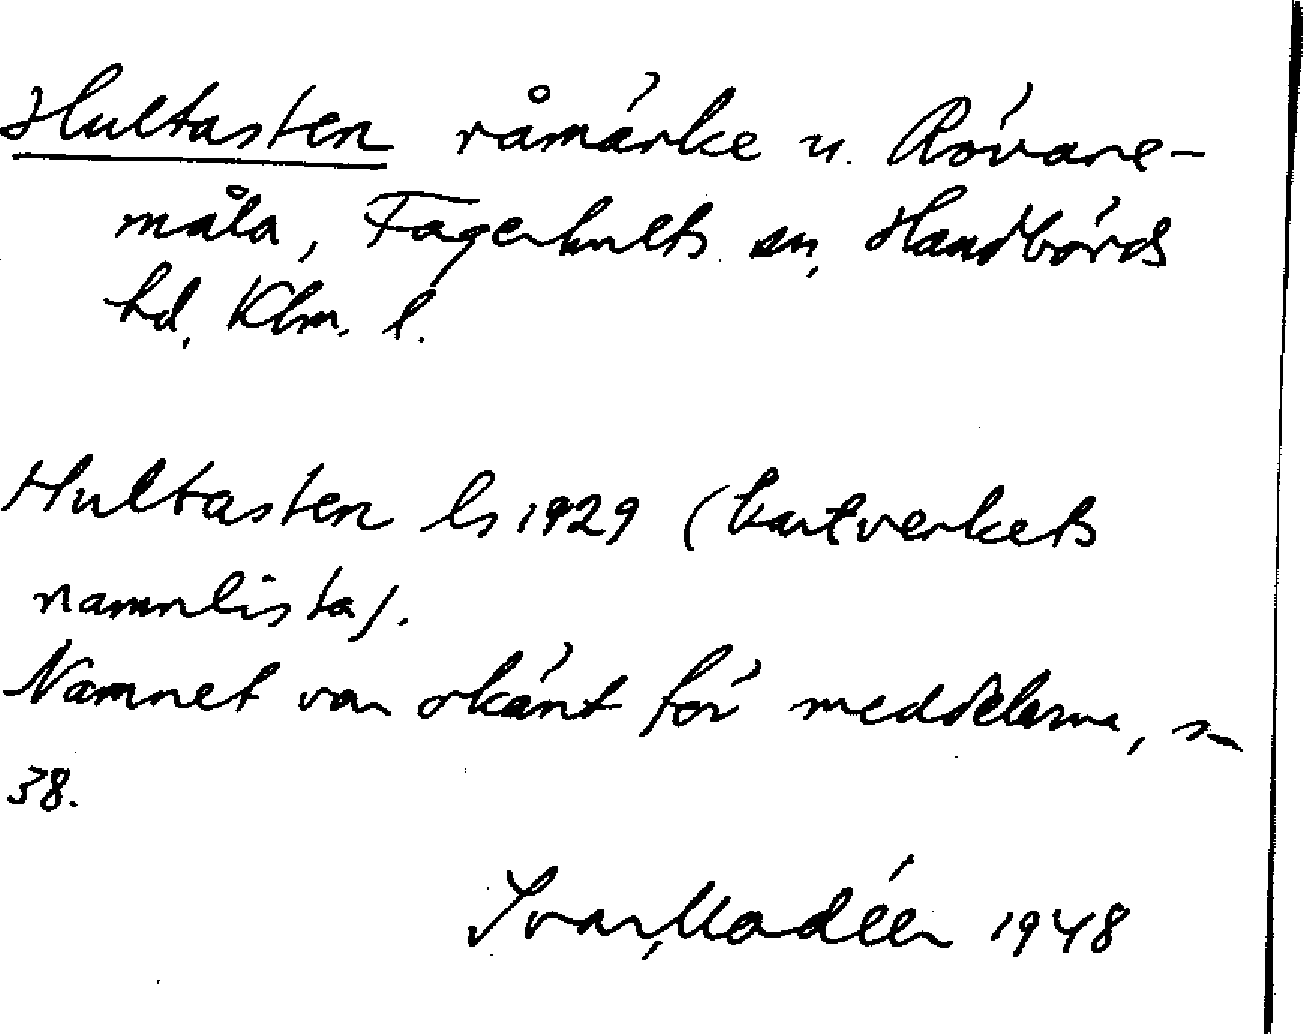 Hultasten råmärke u. Rövare-
måla, Fagerhults sn, Handbörds
hd, Klm. l.
Hultasten ls 1929 (kartverkets
namnlista).
Namnet var okänt för meddelarna,
38.
Ivar Modéer 1948